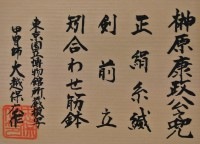 榊原康政公兜
正絹糸縅
剣前立
矧合わせ筋鉢
東京国立博物館所蔵模写
甲冑師 大越保広作